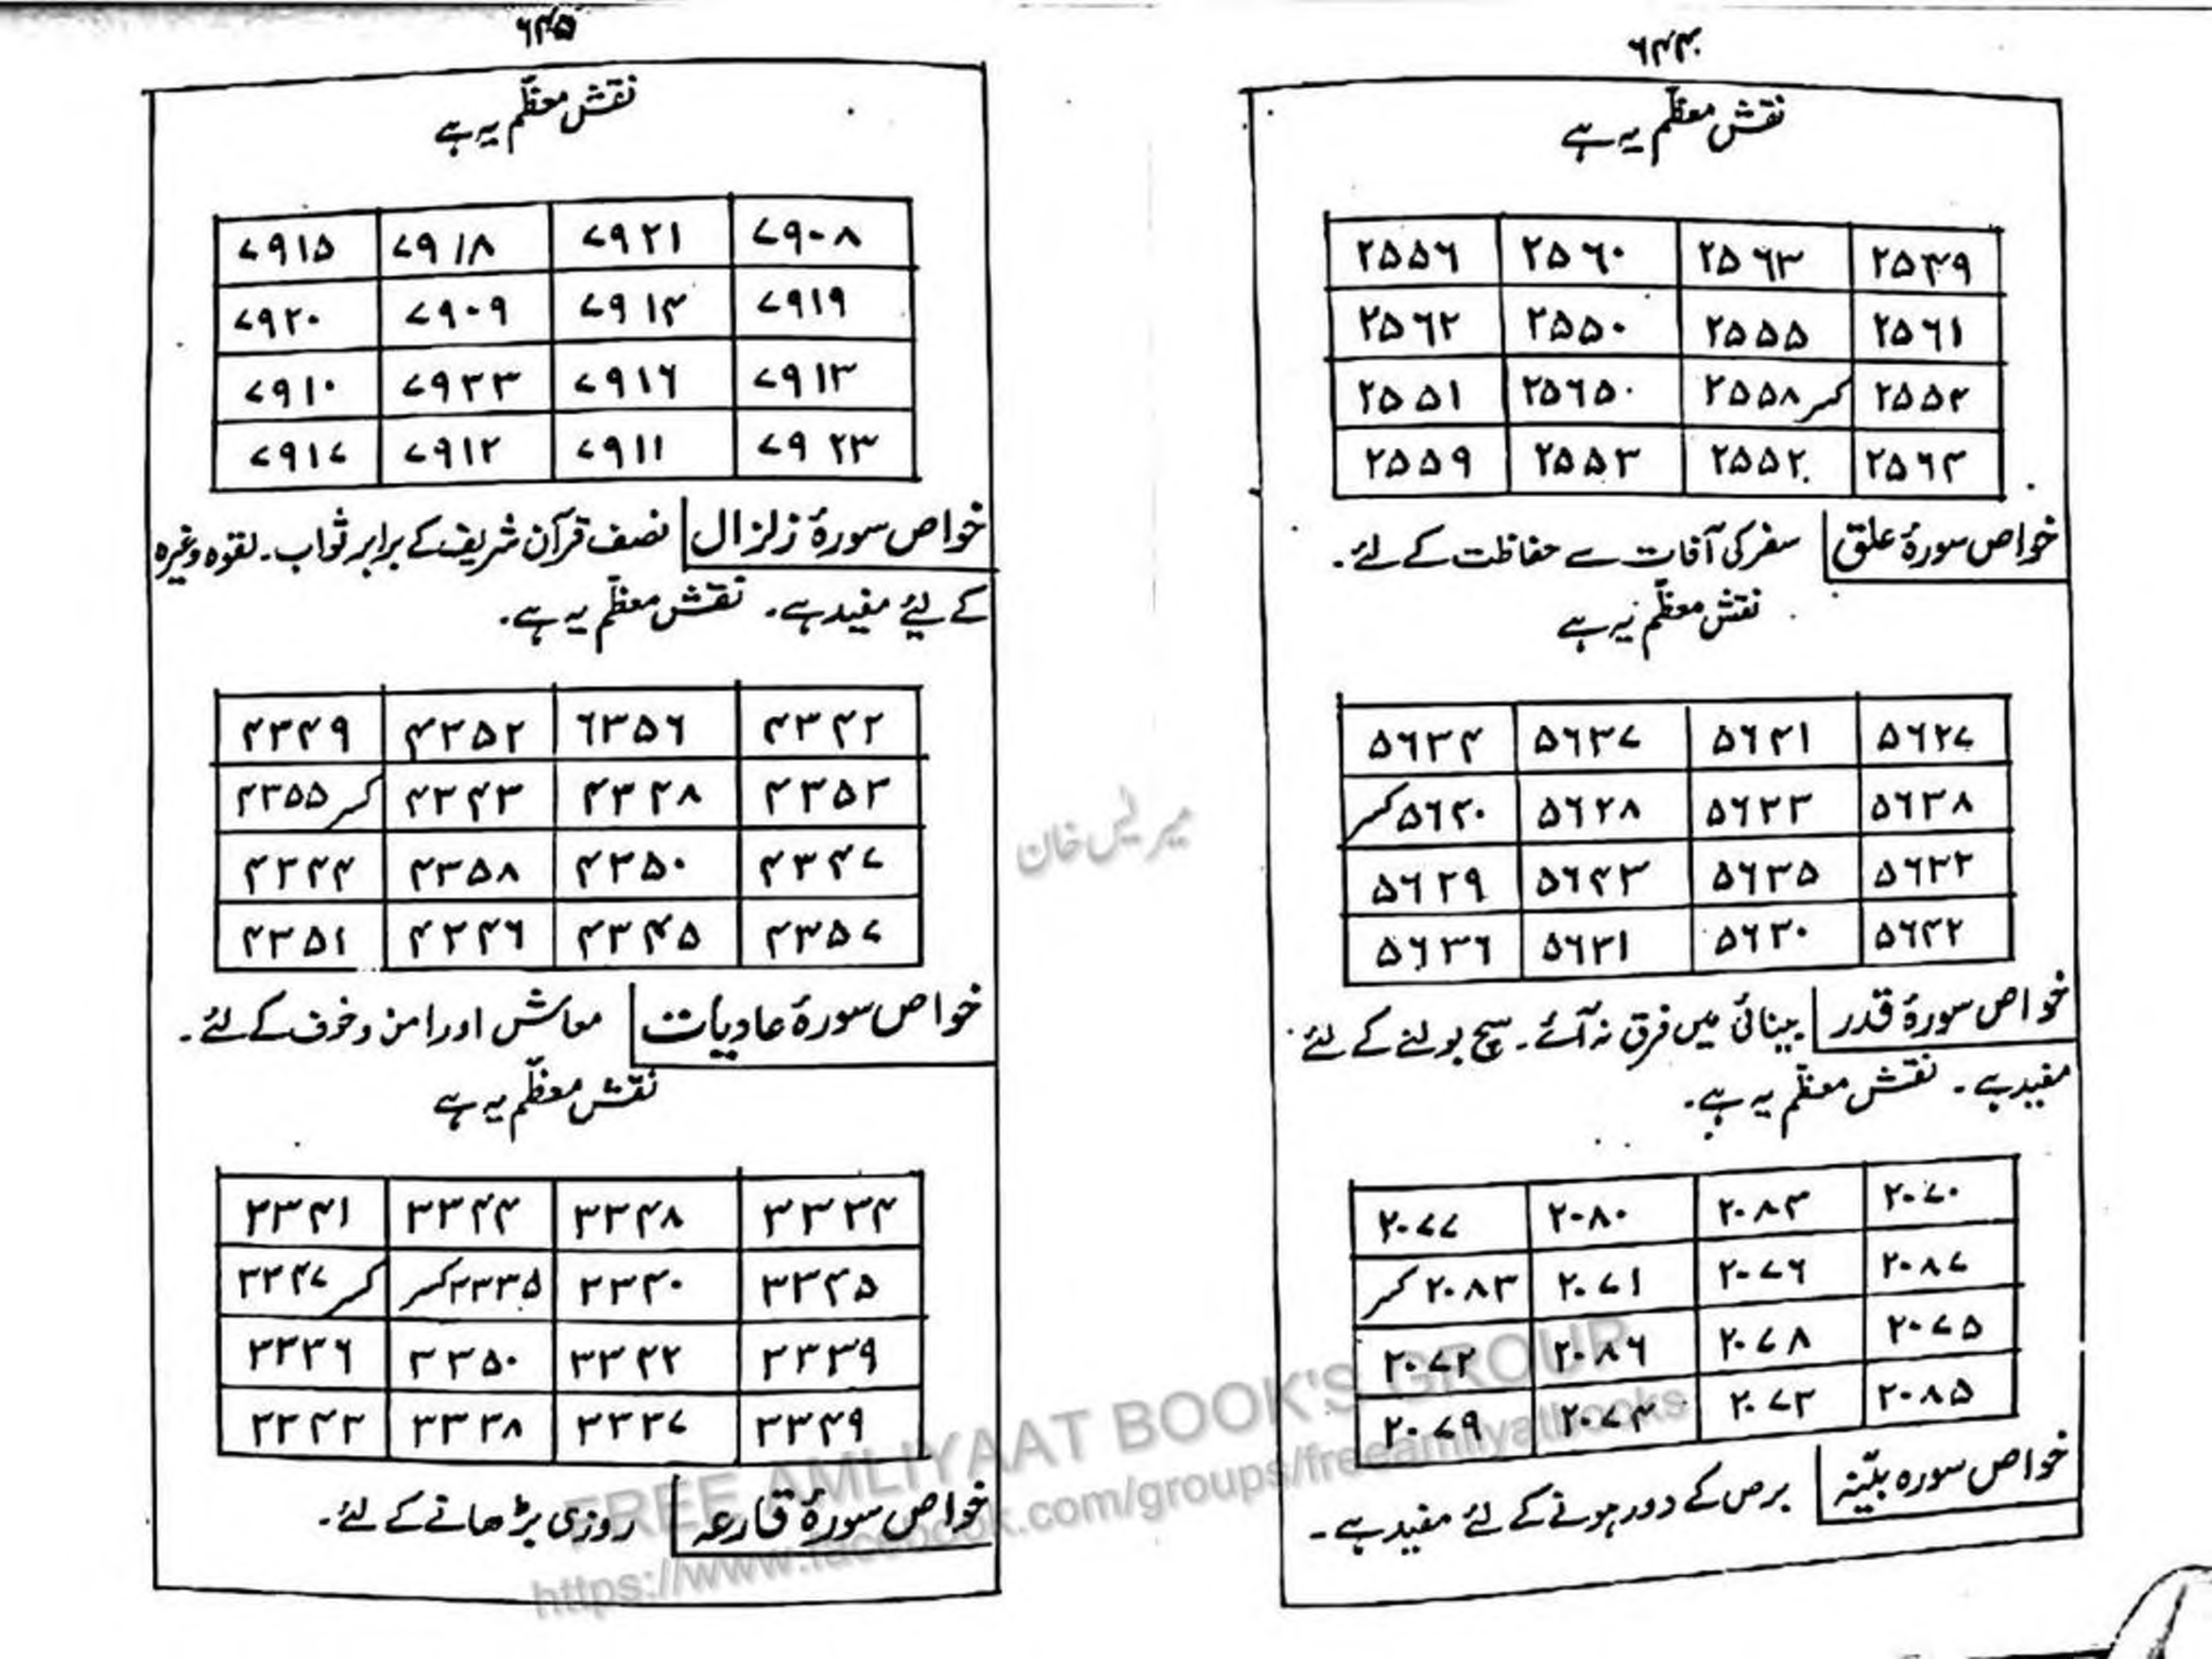 ۶۴۴
نقش معظّم یہ ہے
۲۵۵۶ ۲۵۶۰ ۲۵۶۳ ۲۵۴۹
۲۵۶۲ ۲۵۵۰ ۲۵۵۵ ۲۵۶۱
۲۵۵۱ ۲۵۶۵۰ ۲۵۵۸کسر ۲۵۵۴
۲۵۵۹ ۲۵۵۳ ۲۵۵۲ ۲۵۶۴
خواص سورۂ علق سفر کی آفات سے حفاظت کے لئے۔
نقش معظّم یہ ہے
۵۶۳۴ ۵۶۳۷ ۵۶۴۱ ۵۶۲۷
۵۶۴۰کسر ۵۶۲۸ ۵۶۳۳ ۵۶۳۸
۵۶۲۹ ۵۶۴۳ ۵۶۳۵ ۵۶۳۲
۵۶۳۶ ۵۶۳۱ ۵۶۳۰ ۵۶۴۲
خواص سورۂ قدر بینائی میں فرق نہ آئے۔ سچ بولنے کے لئے
مفید ہے۔ نقش معظّم یہ ہے۔
۲۰۷۷ ۲۰۸۰ ۲۰۸۴ ۲۰۷۰
۲۰۸۳کسر ۲۰۷۱ ۲۰۷۶ ۲۰۸۷
۲۰۷۲ ۲۰۸۶ ۲۰۷۸ ۲۰۷۵
۲۰۷۹ ۲۰۷۴ ۲۰۷۳ ۲۰۸۵
خواص سورہ بیّنہ برص کے دور ہونے کے لئے مفید ہے۔
۶۴۵
نقش معظّم یہ ہے
۷۹۱۵ ۷۹۱۸ ۷۹۲۱ ۷۹۰۸
۷۹۲۰ ۷۹۰۹ ۷۹۱۴ ۷۹۱۹
۷۹۱۰ ۷۹۳۳ ۷۹۱۶ ۷۹۱۳
۷۹۱۷ ۷۹۱۲ ۷۹۱۱ ۷۹۲۳
خواص سورۂ زلزال نصف قرآن شریف کے برابر ثواب۔ لقوہ وغیرہ
کے لیے مفید ہے۔ نقش معظّم یہ ہے۔
۴۳۴۹ ۴۳۵۲ ۶۳۵۶ ۴۳۴۲
۴۳۵۵کسر ۴۳۴۳ ۴۳۴۸ ۴۳۵۳
۴۳۴۴ ۴۳۵۸ ۴۳۵۰ ۴۳۴۷
۴۳۵۱ ۴۳۴۶ ۴۳۴۵ ۴۳۵۷
خواص سورۂ عادیات معاش اور امن و خوف کے لئے۔
نقش معظّم یہ ہے
۳۳۴۱ ۳۳۴۴ ۳۳۴۸ ۳۳۳۴
۳۳۴۷کسر ۳۳۳۵کسر ۳۳۴۰ ۳۳۴۵
۳۳۳۶ ۳۳۵۰ ۳۳۴۲ ۳۳۳۹
۳۳۴۳ ۳۳۳۸ ۳۳۳۷ ۳۳۴۹
خواص سورۂ قارعہ روزی بڑھانے کے لئے۔
FREE AMLIYAAT BOOK'S GROUP
https://www.facebook.com/groups/freeamliyatbooks